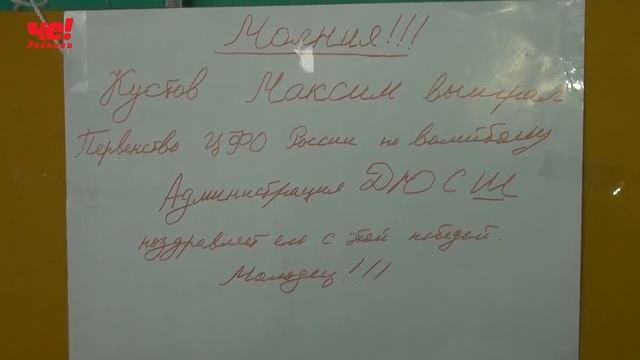 Че!
Ребятки
Молния!!!
Кустов Максим выиграл
Первенство ЦФО России по волейболу
Администрация ДЮСШ
поздравляет его с этой победой.
Молодец!!!